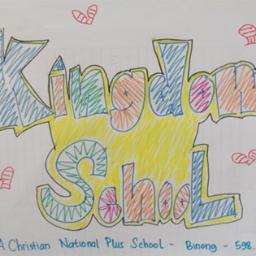 Kingdom
School
A Christian National Plus School - Binong - 598.